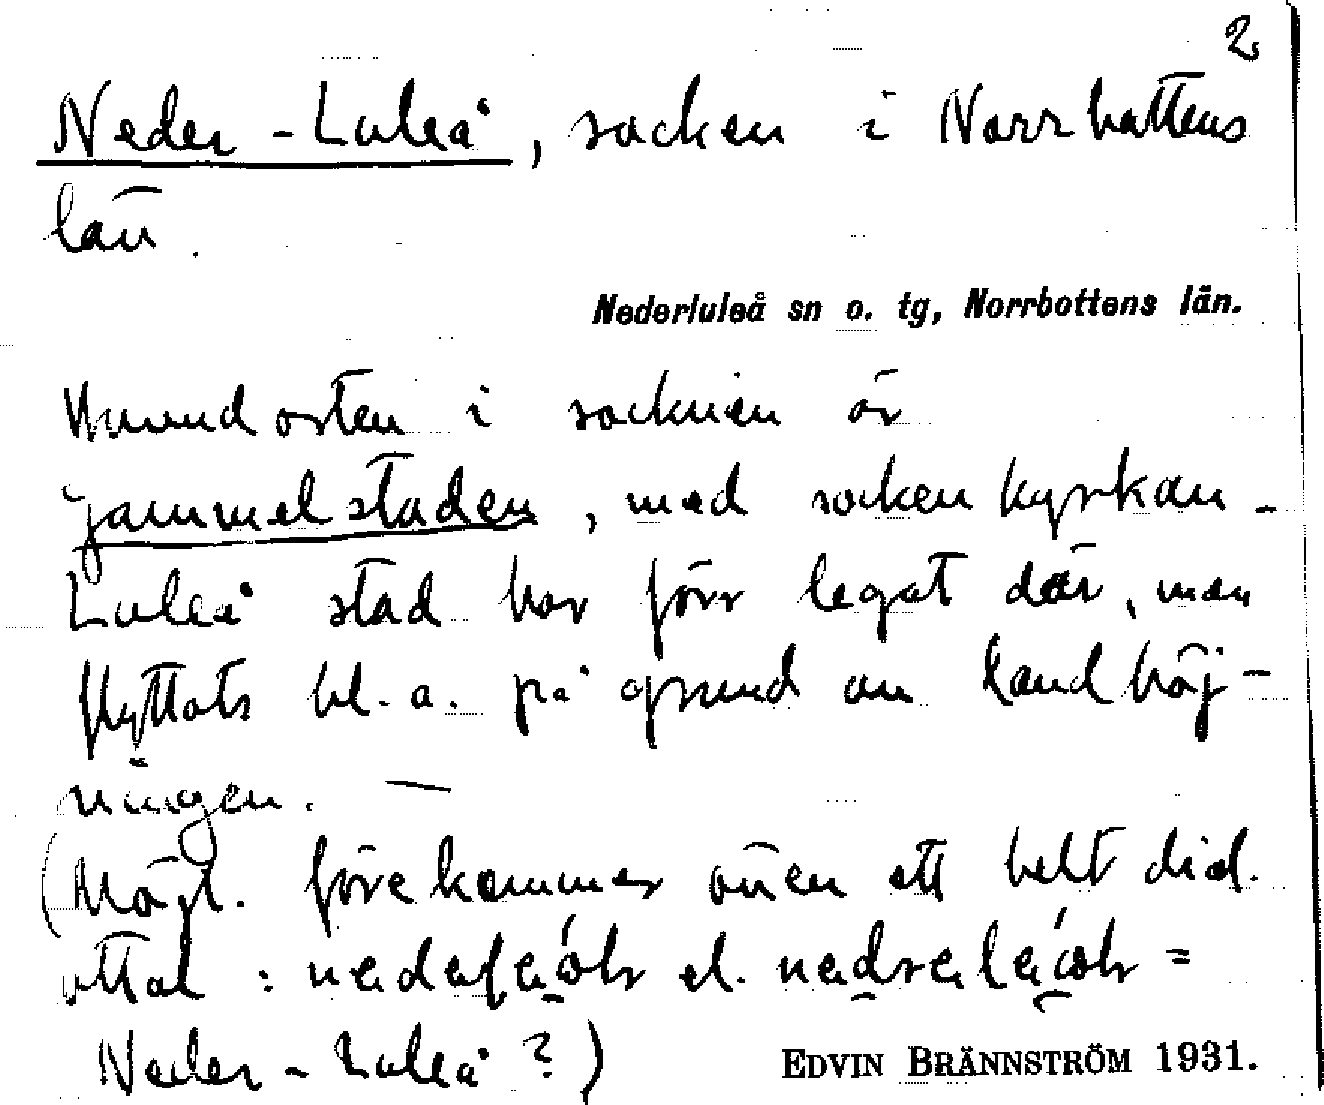 2
Neder-Luleå, socken i Norrbottens
län.
Nederluleå sn o. tg, Norrbottens län.
Huvudorten i socknen är
gammelstaden, med sockenkyrkan -
Luleå stad har förr legat där, men
flyttats bl. a. på grund av landhöj-
ningen. —
(Mögl. förekommer även ett helt dial.
uttal : el. =
Neder-Luleå ?)
EDVIN BRÄNNSTRÖM 1931.